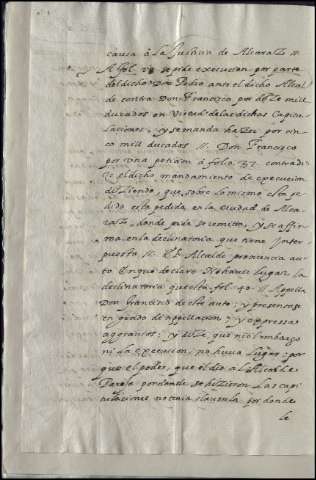 causa à la Justicia de Alcaraz. //
A fol. se pide execucion por parte
del dicho Don Pedro ante el dicho Alcal
de contra Don Francisco, por diez mil
ducados en virtud de las dichas Capitu
laciones, y se manda hazer por cin
co mil ducados. // Don Francisco
por una peticion à folio 37 contradi
ze el dicho mandamiento de execucion
diziendo, que sobre lo mismo esta pe
dido esta pedida en la Ciudad de Alca
raz, donde pide se remita, y se affir
ma en la declinatoria que tiene inter
puesta // El Alcalde pronuncia au
to en que declara No haver lugar la
declinatoria que esta fol. 40 // Appella
Don Francisco de este auto; y presentase
en grado de appellacion; y expressa
agravios; y dize que no embargo
ni la execucion no havia lugar; por
que el poder, que el dio al Alcalde
Pareja por donde se hizieron las capi
tulaciones no tenia clausula por donde
le